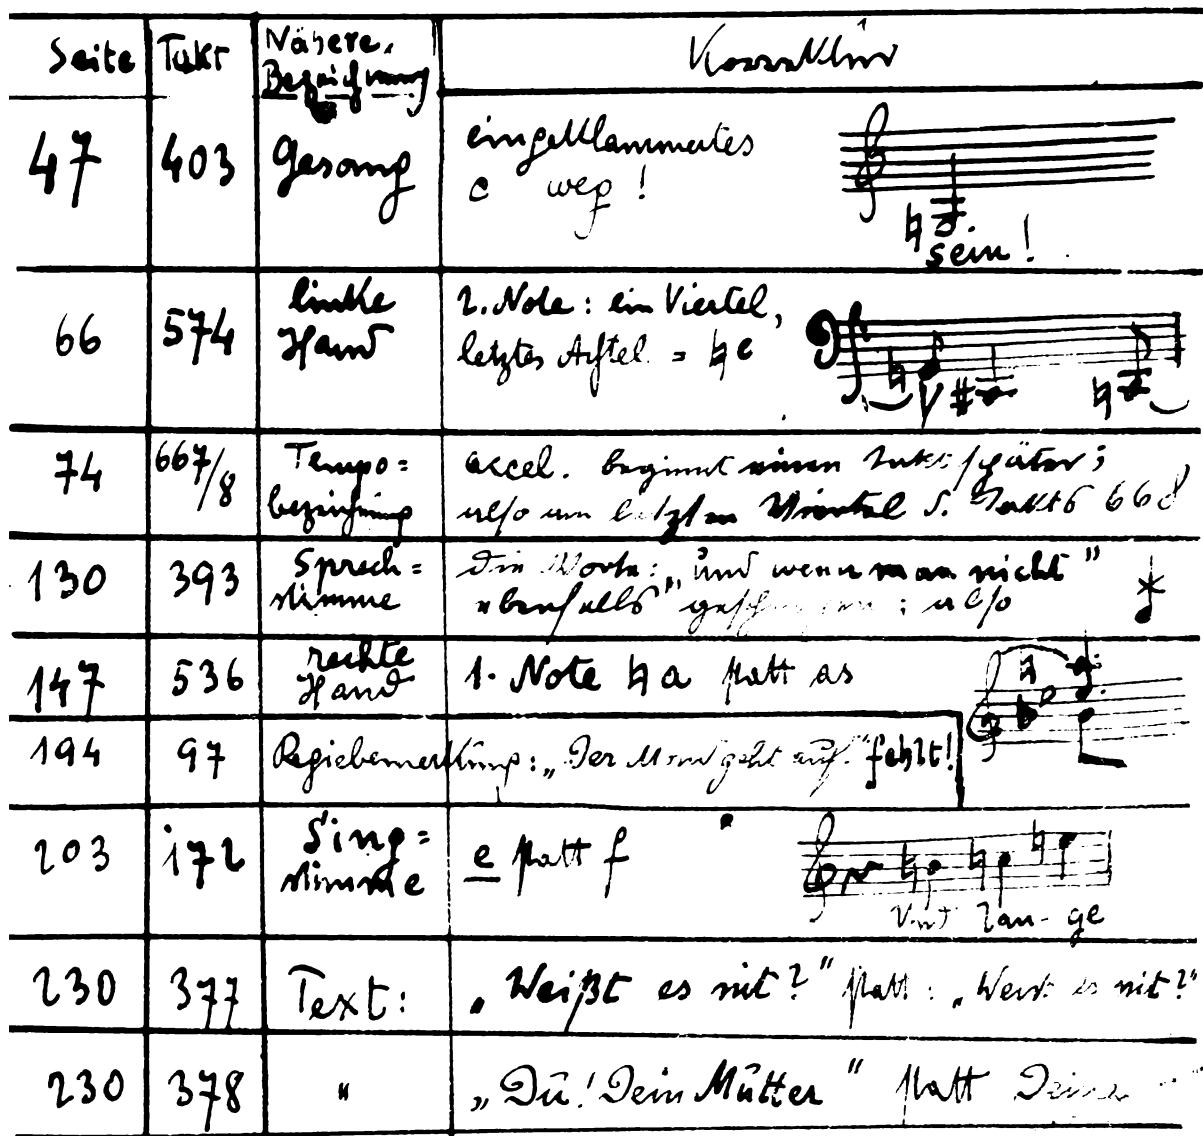 Seite Takt Nähere Bezeichnung Korrektur
47 403 Gesang eingeklammertes
c weg !
sein !
66 574 linke Hand 2. Note : ein Viertel,
letztes Achtel = ♮ e
74 667/8 Tempo= bezeichnung accel. beginnt einen Takt später ;
also am letzten Viertel d. Taktes 668
130 393 Sprech= stimme Die Worte : „und wenn man nicht"
ebenfalls gesprochen ; also
147 536 rechte Hand 1. Note ♮ a statt as
194 97 Regiebemerkung : „Der Mond geht auf" fehlt!
203 172 Sing= stimme e statt f
Und lan- ge
230 377 Text : „Weißt es nit?" statt : „Werst es nit?"
230 378 " „Du! Dein Mutter" statt Deine